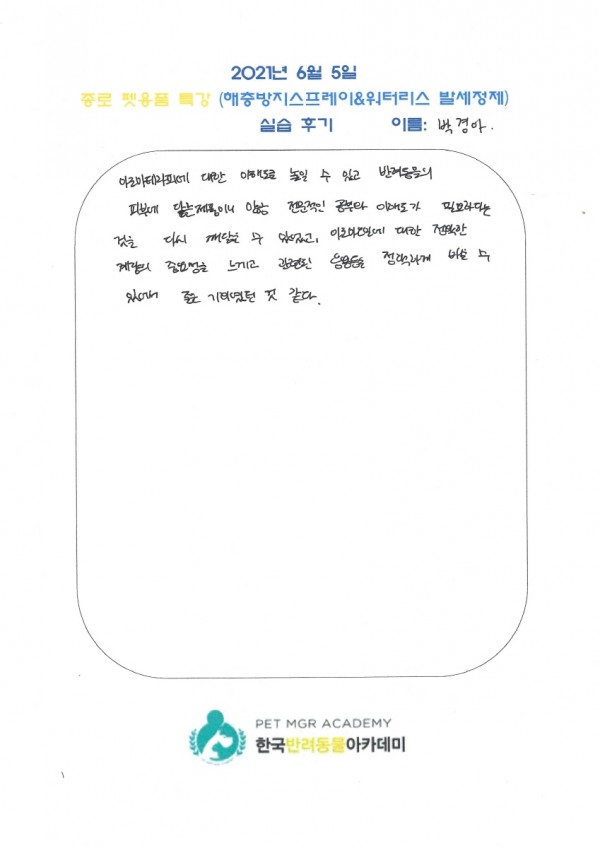 2021년 6월 5일
종로 펫용품 특강 (해충방지스프레이&워터리스 발세정제)
실습 후기 이름: 박경아.
아로마테라피에 대한 이해도를 높일 수 있고 반려동물의
피부에 닿는제품이니 만큼 전문적인 공부와 이해도가 필요하다는
것을 다시 깨달을 수 있었고, 아로마오일에 대한 정확한
계량의 중요성을 느끼고 관련된 용품들을 정확하게 배울 수
있어서 좋은 기회였던 것 같다.
PET MGR ACADEMY
한국반려동물아카데미